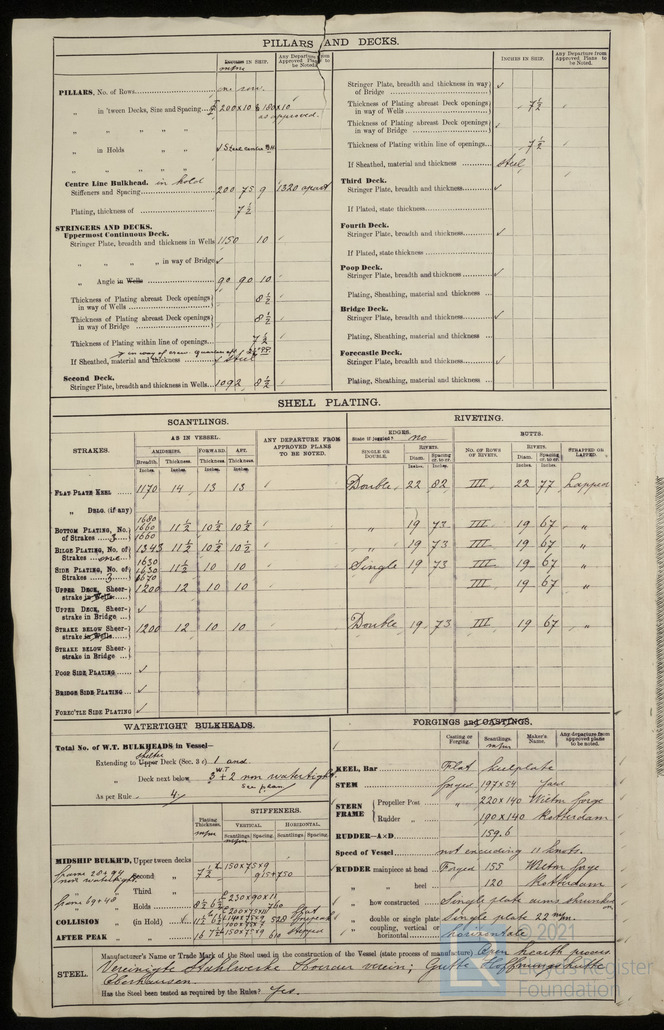 PILLARS AND DECKS.
INCHES IN SHIP.
Any Departure from Approved Plans to be Noted.
m/m
PILLARS, No. of Rows one row.
„ in 'tween Decks, Size and Spacing 200x10 & 180x10
as approved.
„ „ „ „
„ in Holds ✓ Steel centre BH
„ „ „ „
Centre Line Bulkhead. in hold
Stiffeners and Spacing 200 75 9 1320 apart
Plating, thickness of 7 1/2
STRINGERS AND DECKS.
Uppermost Continuous Deck.
Stringer Plate, breadth and thickness in Wells 1150 10
„ „ „ „ in way of Bridge ✓
„ Angle in Wells 90 90 10
Thickness of Plating abreast Deck openings in way of Wells 8 1/2
Thickness of Plating abreast Deck openings in way of Bridge 8 1/2
Thickness of Plating within line of openings 7 1/2
in way of crew quarters
If Sheathed, material and thickness ✓ Steel
Second Deck.
Stringer Plate, breadth and thickness in Wells 1092 8 1/2
INCHES IN SHIP.
Any Departure from Approved Plans to be Noted.
Stringer Plate, breadth and thickness in way of Bridge ✓
Thickness of Plating abreast Deck openings in way of Wells 7 1/2
Thickness of Plating abreast Deck openings in way of Bridge ✓
Thickness of Plating within line of openings 7 1/2
If Sheathed, material and thickness steel
Third Deck.
Stringer Plate, breadth and thickness ✓
If Plated, state thickness
Fourth Deck.
Stringer Plate, breadth and thickness ✓
If Plated, state thickness
Poop Deck.
Stringer Plate, breadth and thickness ✓
Plating, Sheathing, material and thickness
Bridge Deck.
Stringer Plate, breadth and thickness ✓
Plating, Sheathing, material and thickness
Forecastle Deck.
Stringer Plate, breadth and thickness ✓
Plating, Sheathing, material and thickness
SHELL PLATING.
SCANTLINGS. RIVETING.
STRAKES.
AS IN VESSEL.
AMIDSHIPS. FORWARD. AFT.
Breadth. Thickness. Thickness. Thickness.
Inches. Inches. Inches. Inches.
ANY DEPARTURE FROM APPROVED PLANS TO BE NOTED.
EDGES. State if joggled? no
SINGLE OR DOUBLE. RIVETS. Diam. Spacing cr. to cr.
BUTTS.
NO. OF ROWS OF RIVETS. RIVETS. Diam. Spacing cr. to cr. STRAPPED OR LAPPED.
FLAT PLATE KEEL 1170 14 13 13 Double 22 82 III 22 77 Lapped
„ DBLG. (if any)
BOTTOM PLATING, No. of Strakes 3 1680 1660 1660 11 1/2 10 1/2 10 1/2 „ 19 73 III 19 67 „
BILGE PLATING, No. of Strakes one 1343 11 1/2 10 1/2 10 1/2 „ 19 73 III 19 67 „
SIDE PLATING, No. of Strakes 3 1630 1630 1670 11 1/2 10 10 Single 19 73 III 19 67 „
UPPER DECK, Sheerstrake in Wells 1200 12 10 10 III 19 67 „
UPPER DECK, Sheerstrake in Bridge ✓
STRAKE BELOW Sheerstrake in Wells 1200 12 10 10 Double 19 73 III 19 67 „
STRAKE BELOW Sheerstrake in Bridge
POOP SIDE PLATING ✓
BRIDGE SIDE PLATING ✓
FORECTLE SIDE PLATING ✓
WATERTIGHT BULKHEADS.
Total No. of W.T. BULKHEADS in Vessel—
shelter
Extending to Upper Deck (Sec. 3 c) 1 and
„ Deck next below 3 W.T + 2 non watertight.
see plan
As per Rule 4
Plating Thickness. m/m
STIFFENERS.
VERTICAL. HORIZONTAL.
Scantlings Spacing. Scantlings Spacing.
MIDSHIP BULKH'D, Upper tween decks
frame 20 & 94 non watertight Second „ 7 1/2 150x75x9 915+750
Third „
frame 69 & 48 „ Holds 8 1/2 230x90x11 760
COLLISION „ (in Hold)
AFTER PEAK „ 150x75x9 610
FORGINGS and CASTINGS.
Casting or Forging. Scantlings. m/m Maker's Name. Any departure from approved plans to be noted.
KEEL, Bar Flat keelplate
STEM forged 197x54
STERN FRAME Propeller Post „ 220x140 Wilton forge
Rudder „ 190x140 Rotterdam
RUDDER—A×D 159.6
Speed of Vessel not exceeding 11 knots.
RUDDER mainpiece at head Forged 155 Wilton forge
„ „ heel 120 Rotterdam
„ how constructed Single plate arms shrunk on
„ double or single plate Single plate 22 m/m.
„ coupling, vertical or horizontal horizontale
STEEL. Manufacturer's Name or Trade Mark of the Steel used in the construction of the Vessel (state process of manufacture) Open hearth process
Vereinigte Stahlwerke Hoerder verein; Gutte Hoffnungshutte
Oberhausen.
Has the Steel been tested as required by the Rules? Yes.
© 2021
Lloyd's Register
Foundation
LR